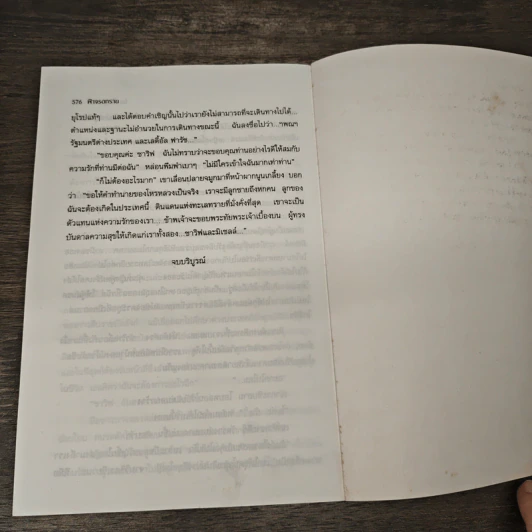 376 ฟ้าจรดทราย
ยุโรปแท้ๆ และได้ตอบคำเชิญนั้นไปว่าเรายังไม่สามารถที่จะเดินทางไปได้...
ตำแหน่งและฐานะไม่อำนวยในการเดินทางขณะนี้ ฉันลงชื่อไปว่า...ฯพณฯ
รัฐมนตรีต่างประเทศ และเลดี้อัล ฟารัช..."
"ขอบคุณค่ะ ชารีฟ ฉันไม่ทราบว่าจะขอบคุณท่านอย่างไรดีให้สมกับ
ความรักที่ท่านมีต่อฉัน" หล่อนพึมพำเบาๆ "ไม่มีใครเข้าใจฉันมากเท่าท่าน"
"ก็ไม่ต้องอะไรมาก" เขาเลื่อนปลายจมูกมาที่หน้าผากนูนเกลี้ยง บอก
ว่า "ขอให้คำทำนายของโหรหลวงเป็นจริง เราจะมีลูกชายถึงหกคน ลูกของ
ฉันจะต้องเกิดในประเทศนี้ ดินแดนแห่งทะเลทรายที่มั่งคั่งที่สุด ...เขาจะเป็น
ตัวแทนแห่งความรักของเรา... ข้าพเจ้าจะขอบพระทัยพระเจ้าเบื้องบน ผู้ทรง
บันดาลความสุขให้เกิดแก่เราทั้งสอง...ชารีฟและมิเชลล์..."
จบบริบูรณ์